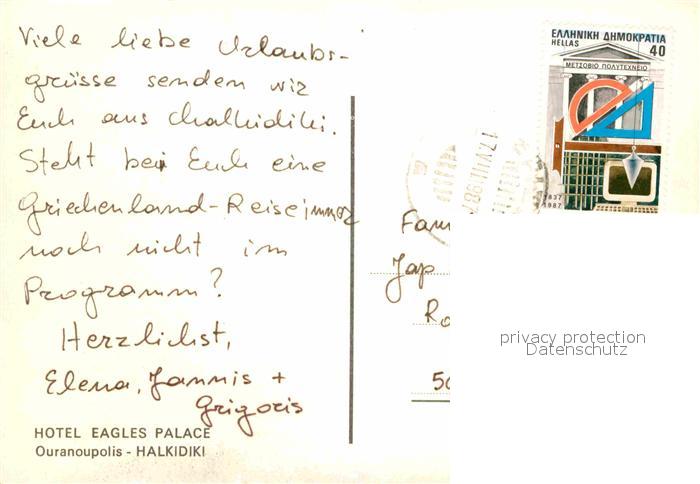 Viele liebe Urlaubs-
grüsse senden wir
Euch aus Chalkidiki.
Steht bei Euch eine
Griechenland-Reise immer
noch nicht im
Programm?
Herzlichst,
Elena, Jannis +
Grigoris
HOTEL EAGLES PALACE
Ouranoupolis - HALKIDIKI
ΕΛΛΗΝΙΚΗ ΔΗΜΟΚΡΑΤΙΑ
HELLAS 40
ΜΕΤΣΟΒΙΟ ΠΟΛΥΤΕΧΝΕΙΟ
1837
1987
17 VIII 1987
Fam
Jap
Ro
50
privacy protection
Datenschutz